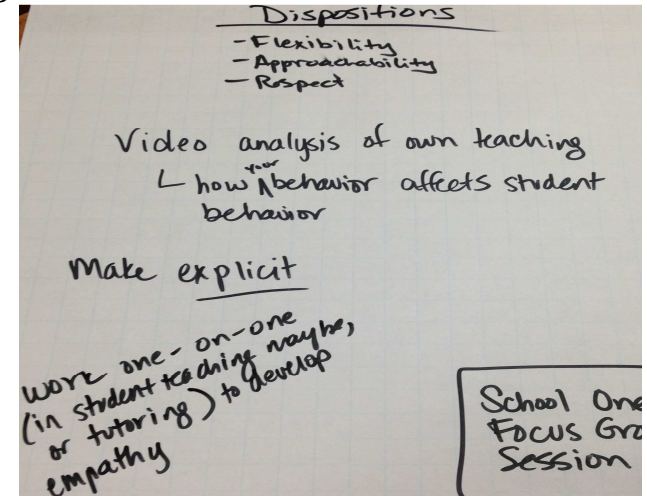 Dispositions
- Flexibility
- Approachability
- Respect
Video analysis of own teaching
how your behavior affects student
behavior
Make explicit
work one-on-one
(in student teaching maybe,
or tutoring) to develop
empathy
School One
Focus Gro
Session